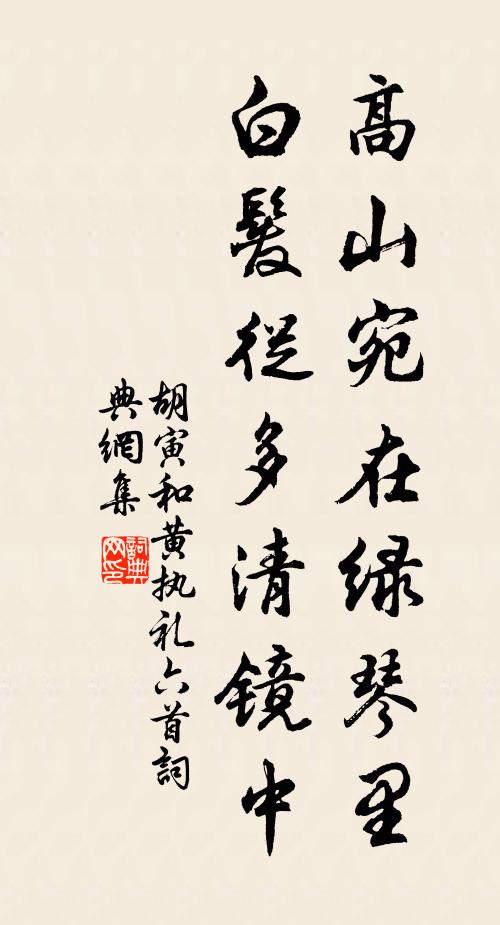 高山宛在绿琴里
白髮從多清镜中
胡寅和黄执礼六首詞
典網集
詞典
网印